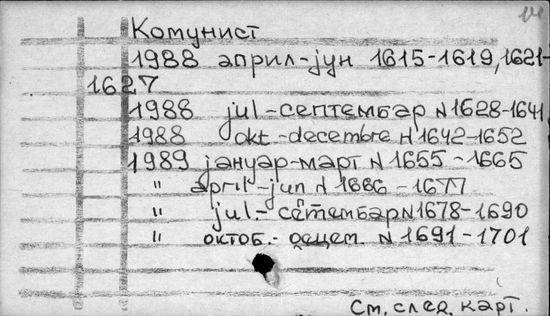 Комунист
1988 април-јун 1615-1619, 1621-
1627
1988 jul-септембар N 1628-1641
1988 okt-decembre N 1642-1652
1989 јануар-март N 1655-1665
" april-jun N 1666-1677
" jul.-септембар N 1678-1690
" октоб.-децем. N 1691-1701
См. след. карт.